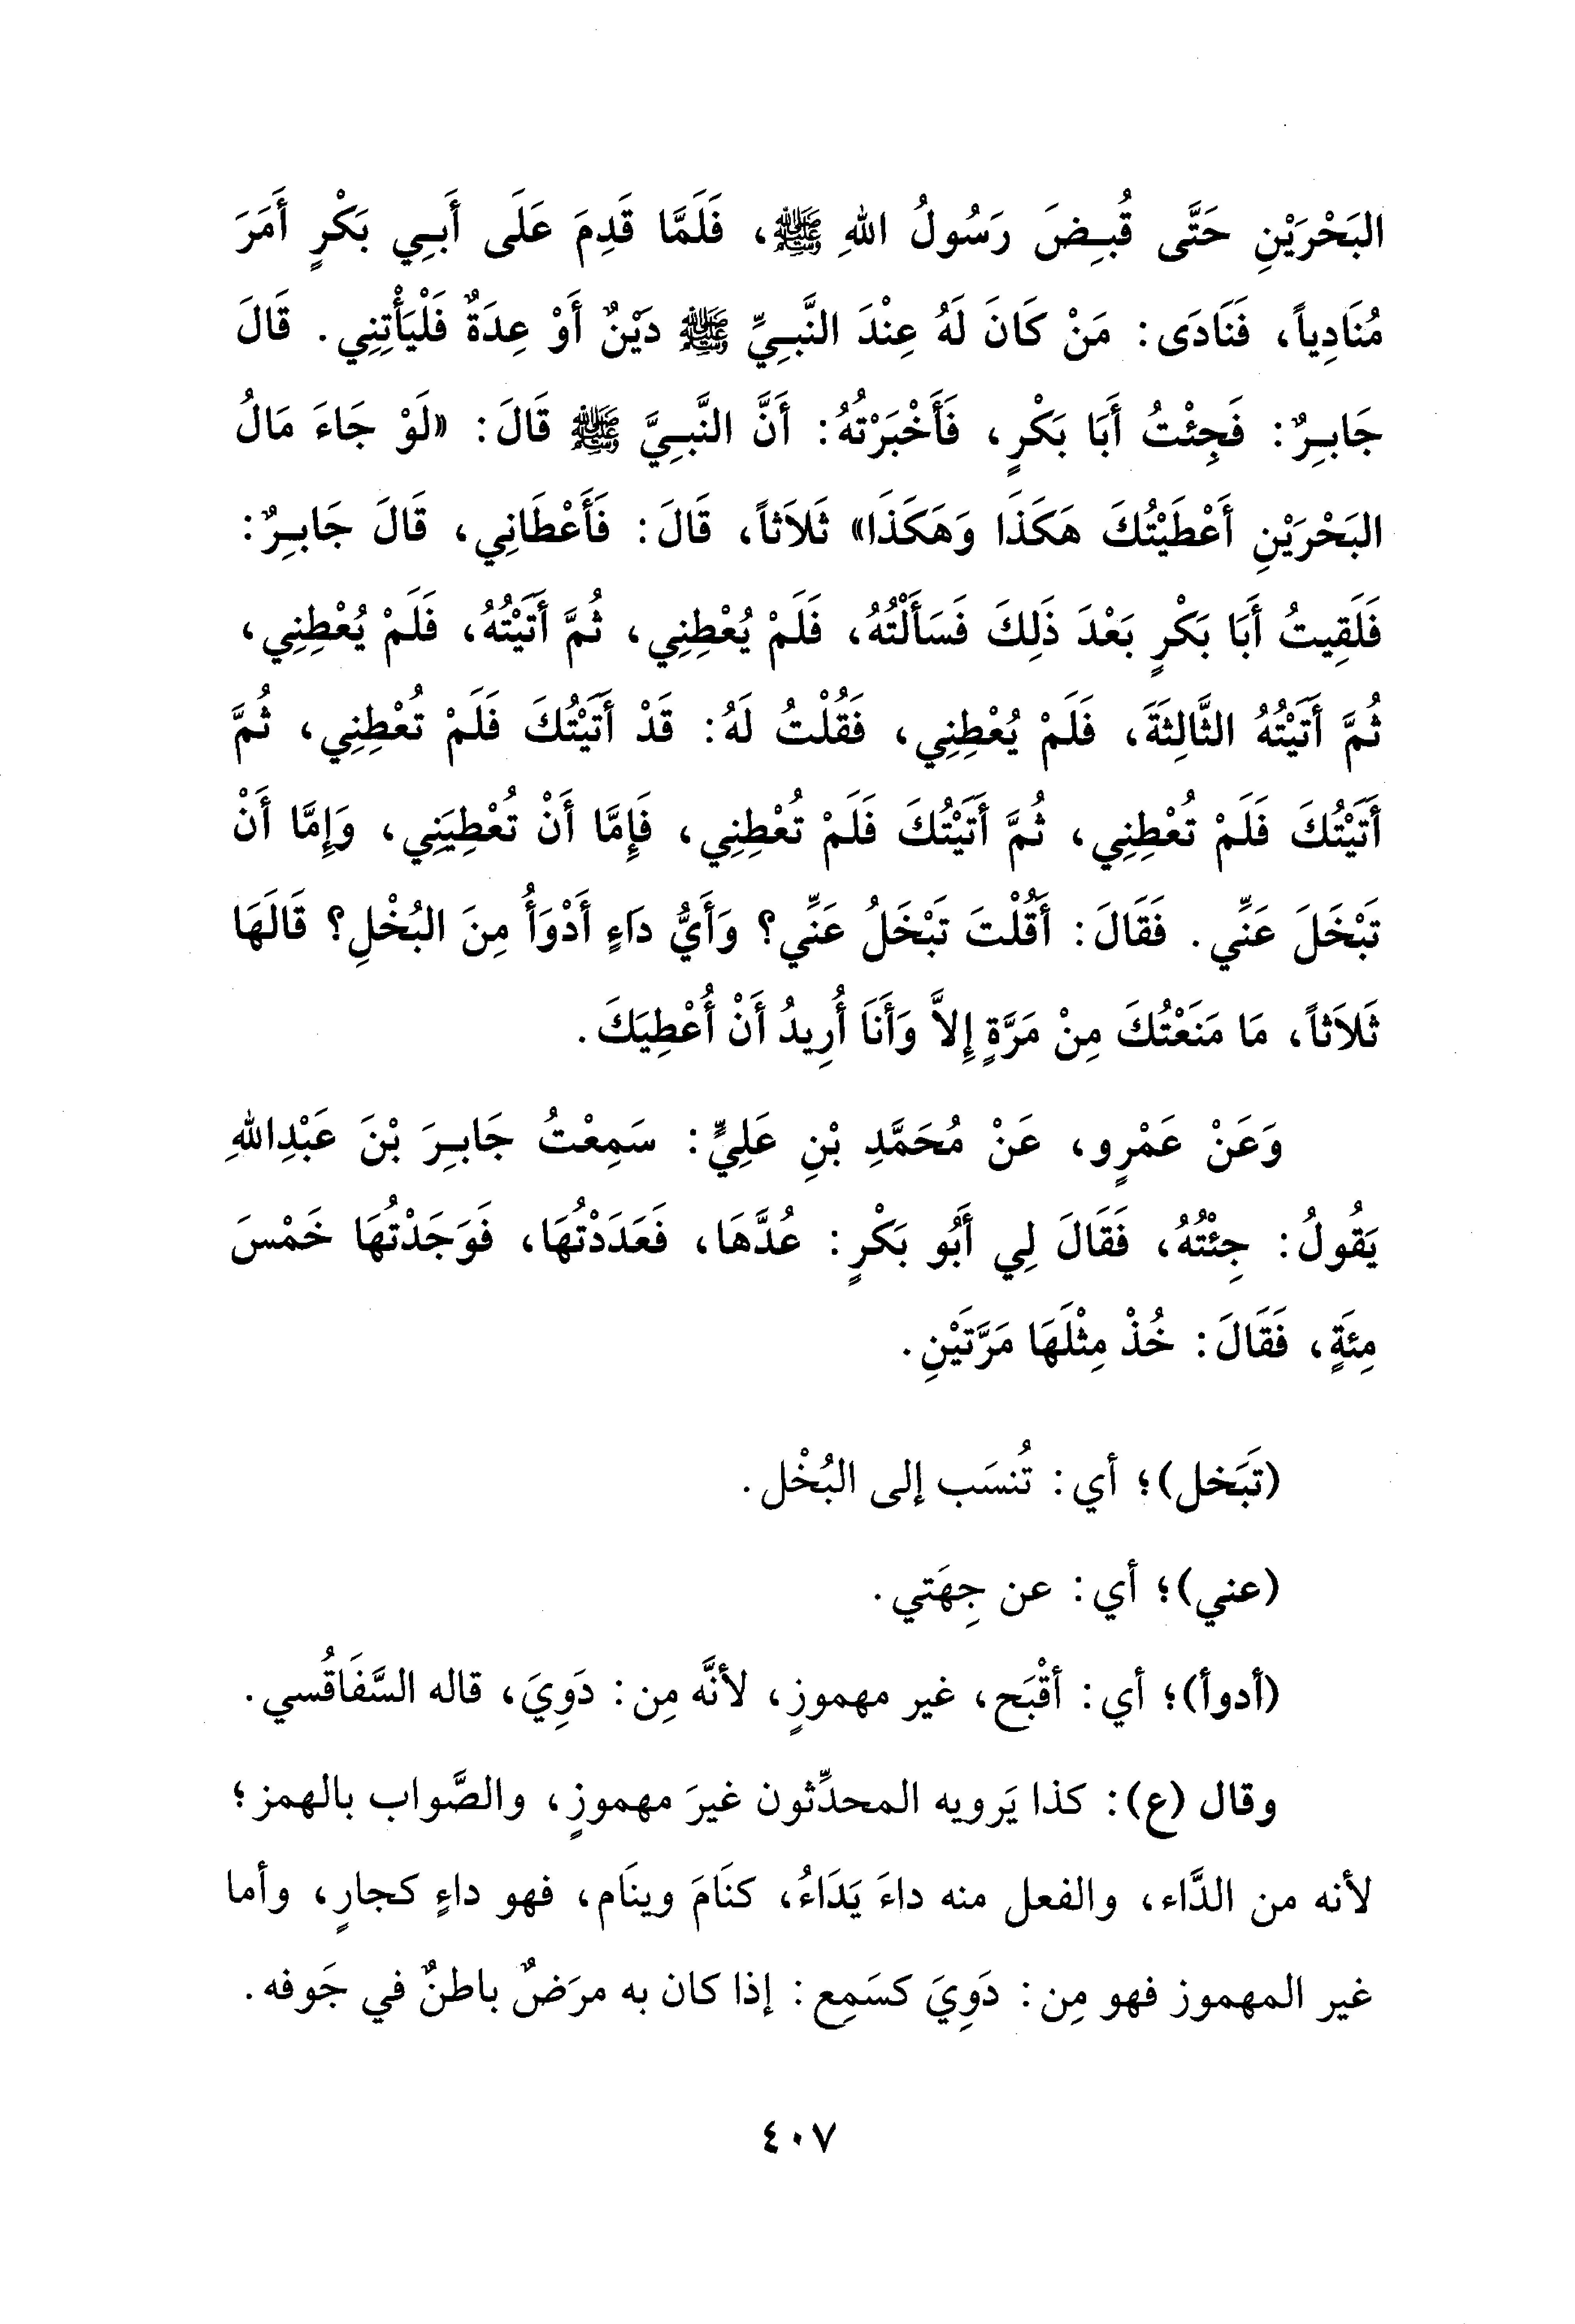 البَحْرَيْنِ حَتَّى قُبِضَ رَسُولُ اللهِ ﷺ، فَلَمَّا قَدِمَ عَلَى أَبِي بَكْرٍ أَمَرَ
مُنَادِياً، فَنَادَى: مَنْ كَانَ لَهُ عِنْدَ النَّبِيِّ ﷺ دَيْنٌ أَوْ عِدَةٌ فَلْيَأْتِنِي. قَالَ
جَابِرٌ: فَجِئْتُ أَبَا بَكْرٍ، فَأَخْبَرْتُهُ: أَنَّ النَّبِيَّ ﷺ قَالَ: «لَوْ جَاءَ مَالُ
البَحْرَيْنِ أَعْطَيْتُكَ هَكَذَا وَهَكَذَا» ثَلاَثاً، قَالَ: فَأَعْطَانِي، قَالَ جَابِرٌ:
فَلَقِيتُ أَبَا بَكْرٍ بَعْدَ ذَلِكَ فَسَأَلْتُهُ، فَلَمْ يُعْطِنِي، ثُمَّ أَتَيْتُهُ، فَلَمْ يُعْطِنِي،
ثُمَّ أَتَيْتُهُ الثَّالِثَةَ، فَلَمْ يُعْطِنِي، فَقُلْتُ لَهُ: قَدْ أَتَيْتُكَ فَلَمْ تُعْطِنِي، ثُمَّ
أَتَيْتُكَ فَلَمْ تُعْطِنِي، ثُمَّ أَتَيْتُكَ فَلَمْ تُعْطِنِي، فَإِمَّا أَنْ تُعْطِيَنِي، وَإِمَّا أَنْ
تَبْخَلَ عَنِّي. فَقَالَ: أَقُلْتَ تَبْخَلُ عَنِّي؟ وَأَيُّ دَاءٍ أَدْوَأُ مِنَ البُخْلِ؟ قَالَهَا
ثَلاَثاً، مَا مَنَعْتُكَ مِنْ مَرَّةٍ إِلاَّ وَأَنَا أُرِيدُ أَنْ أُعْطِيَكَ.
وَعَنْ عَمْرٍو، عَنْ مُحَمَّدِ بْنِ عَلِيٍّ: سَمِعْتُ جَابِرَ بْنَ عَبْدِاللهِ
يَقُولُ: جِئْتُهُ، فَقَالَ لِي أَبُو بَكْرٍ: عُدَّهَا، فَعَدَدْتُهَا، فَوَجَدْتُهَا خَمْسَ
مِئَةٍ، فَقَالَ: خُذْ مِثْلَهَا مَرَّتَيْنِ.
(تَبَخل)؛ أي: تُنسَب إلى البُخْل.
(عني)؛ أي: عن جِهَتي.
(أدوأ)؛ أي: أقْبَح، غير مهموزٍ، لأنَّه مِن: دَوِيَ، قاله السَّفَاقُسي.
وقال (ع): كذا يَرويه المحدِّثون غيرَ مهموزٍ، والصَّواب بالهمز؛
لأنه من الدَّاء، والفعل منه داءَ يَدَاءُ، كنَامَ وينَام، فهو داءٍ كجارٍ، وأما
غير المهموز فهو مِن: دَوِيَ كسَمِع: إذا كان به مرَضٌ باطنٌ في جَوفه.
٤٠٧